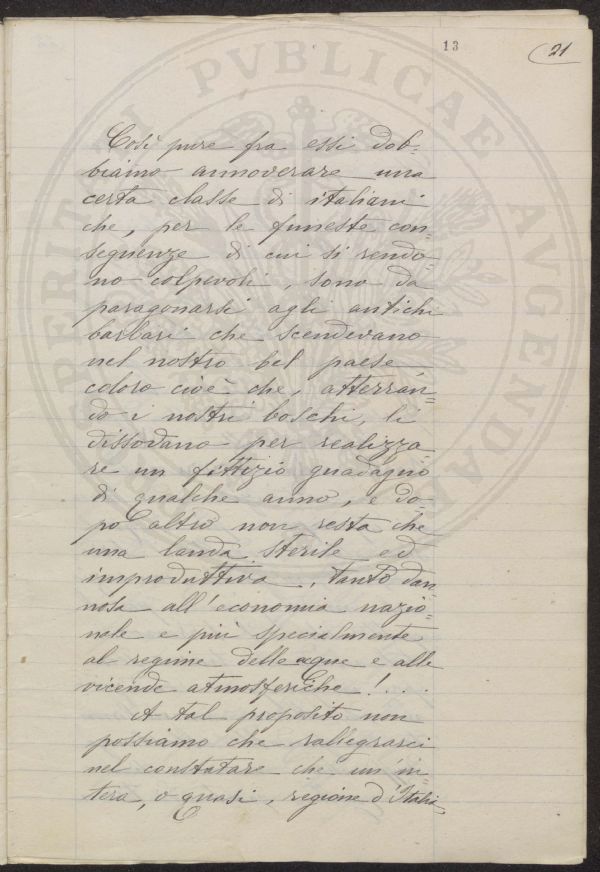 13
21
Così pure fra essi dob=
biamo annoverare una
certa classe di italiani
che, per le funeste con=
seguenze di cui si rendo=
no colpevoli, sono da
paragonarsi agli antichi
barbari che scendevano
nel nostro bel paese,
coloro cioè che, atterran=
do i nostri boschi, li
dissodano per realizza=
re un fittizio guadagno
di qualche anno, e do=
po altro non resta che
una landa sterile ed
improduttiva, tanto dan
nosa all'economia nazio=
nale e più specialmente
al regime delle acque e alle
vicende atmosferiche!....
A tal proposito non
possiamo che rallegrarci
nel constatare che un'in=
tera, o quasi, regione d'Italia
PVBLICAE
AVGENDAE